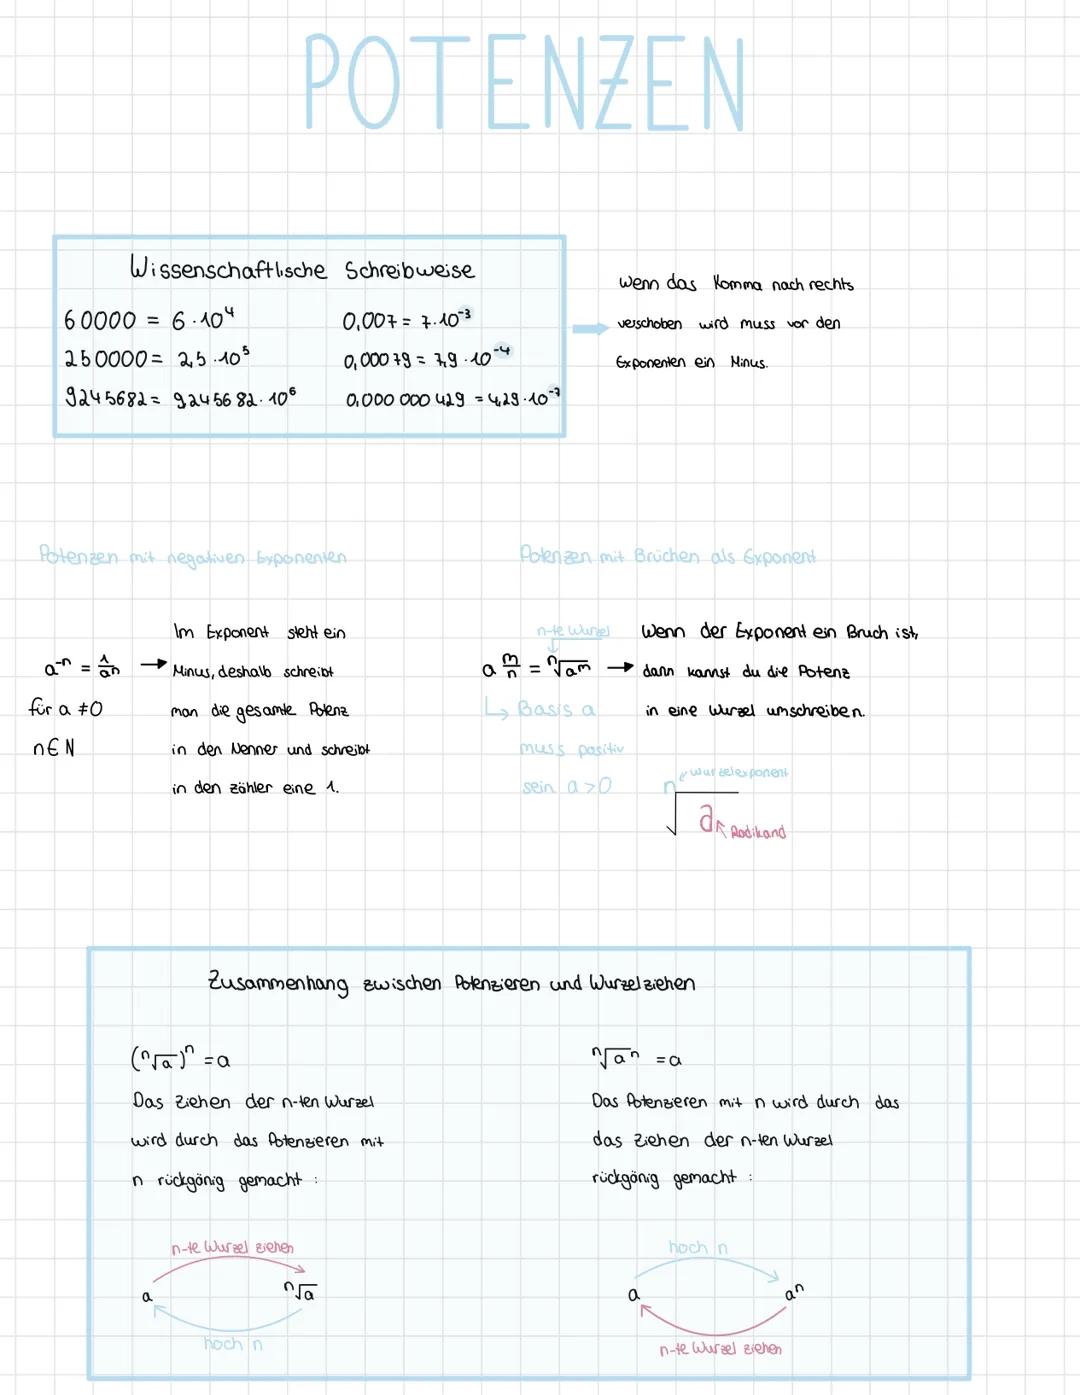 POTENZEN
Wissenschaftlische Schreibweise
60000 = 6 · 10⁴
0,007 = 7 · 10⁻³
250000 = 2,5 · 10⁵
0,00079 = 7,9 · 10⁻⁴
9245682 = 9,245682 · 10⁶
0,000 000 429 = 4,29 · 10⁻⁷
Wenn das Komma nach rechts
verschoben wird muss vor den
Exponenten ein Minus.
Potenzen mit negativen Exponenten
a⁻ⁿ = 1/aⁿ →
für a ≠ 0
n ∈ N
Im Exponent steht ein
Minus, deshalb schreibt
man die gesamte Potenz
in den Nenner und schreibt
in den zähler eine 1.
Potenzen mit Brüchen als Exponent
n-te Wurzel
a^(m/n) = ⁿ√aᵐ →
↳ Basis a
muss positiv
sein a > 0
Wenn der Exponent ein Bruch ist,
dann kannst du die Potenz
in eine Wurzel umschreiben.
Wurzelexponent
ⁿ√a
Radikand
Zusammenhang zwischen Potenzieren und Wurzelziehen
(ⁿ√a)ⁿ = a
Das Ziehen der n-ten Wurzel
wird durch das Potenzieren mit
n rückgönig gemacht :
n-te Wurzel ziehen
a ⁿ√a
hoch n
ⁿ√aⁿ = a
Das Potenzieren mit n wird durch das
das Ziehen der n-ten Wurzel
rückgönig gemacht :
hoch n
a aⁿ
n-te Wurzel ziehen